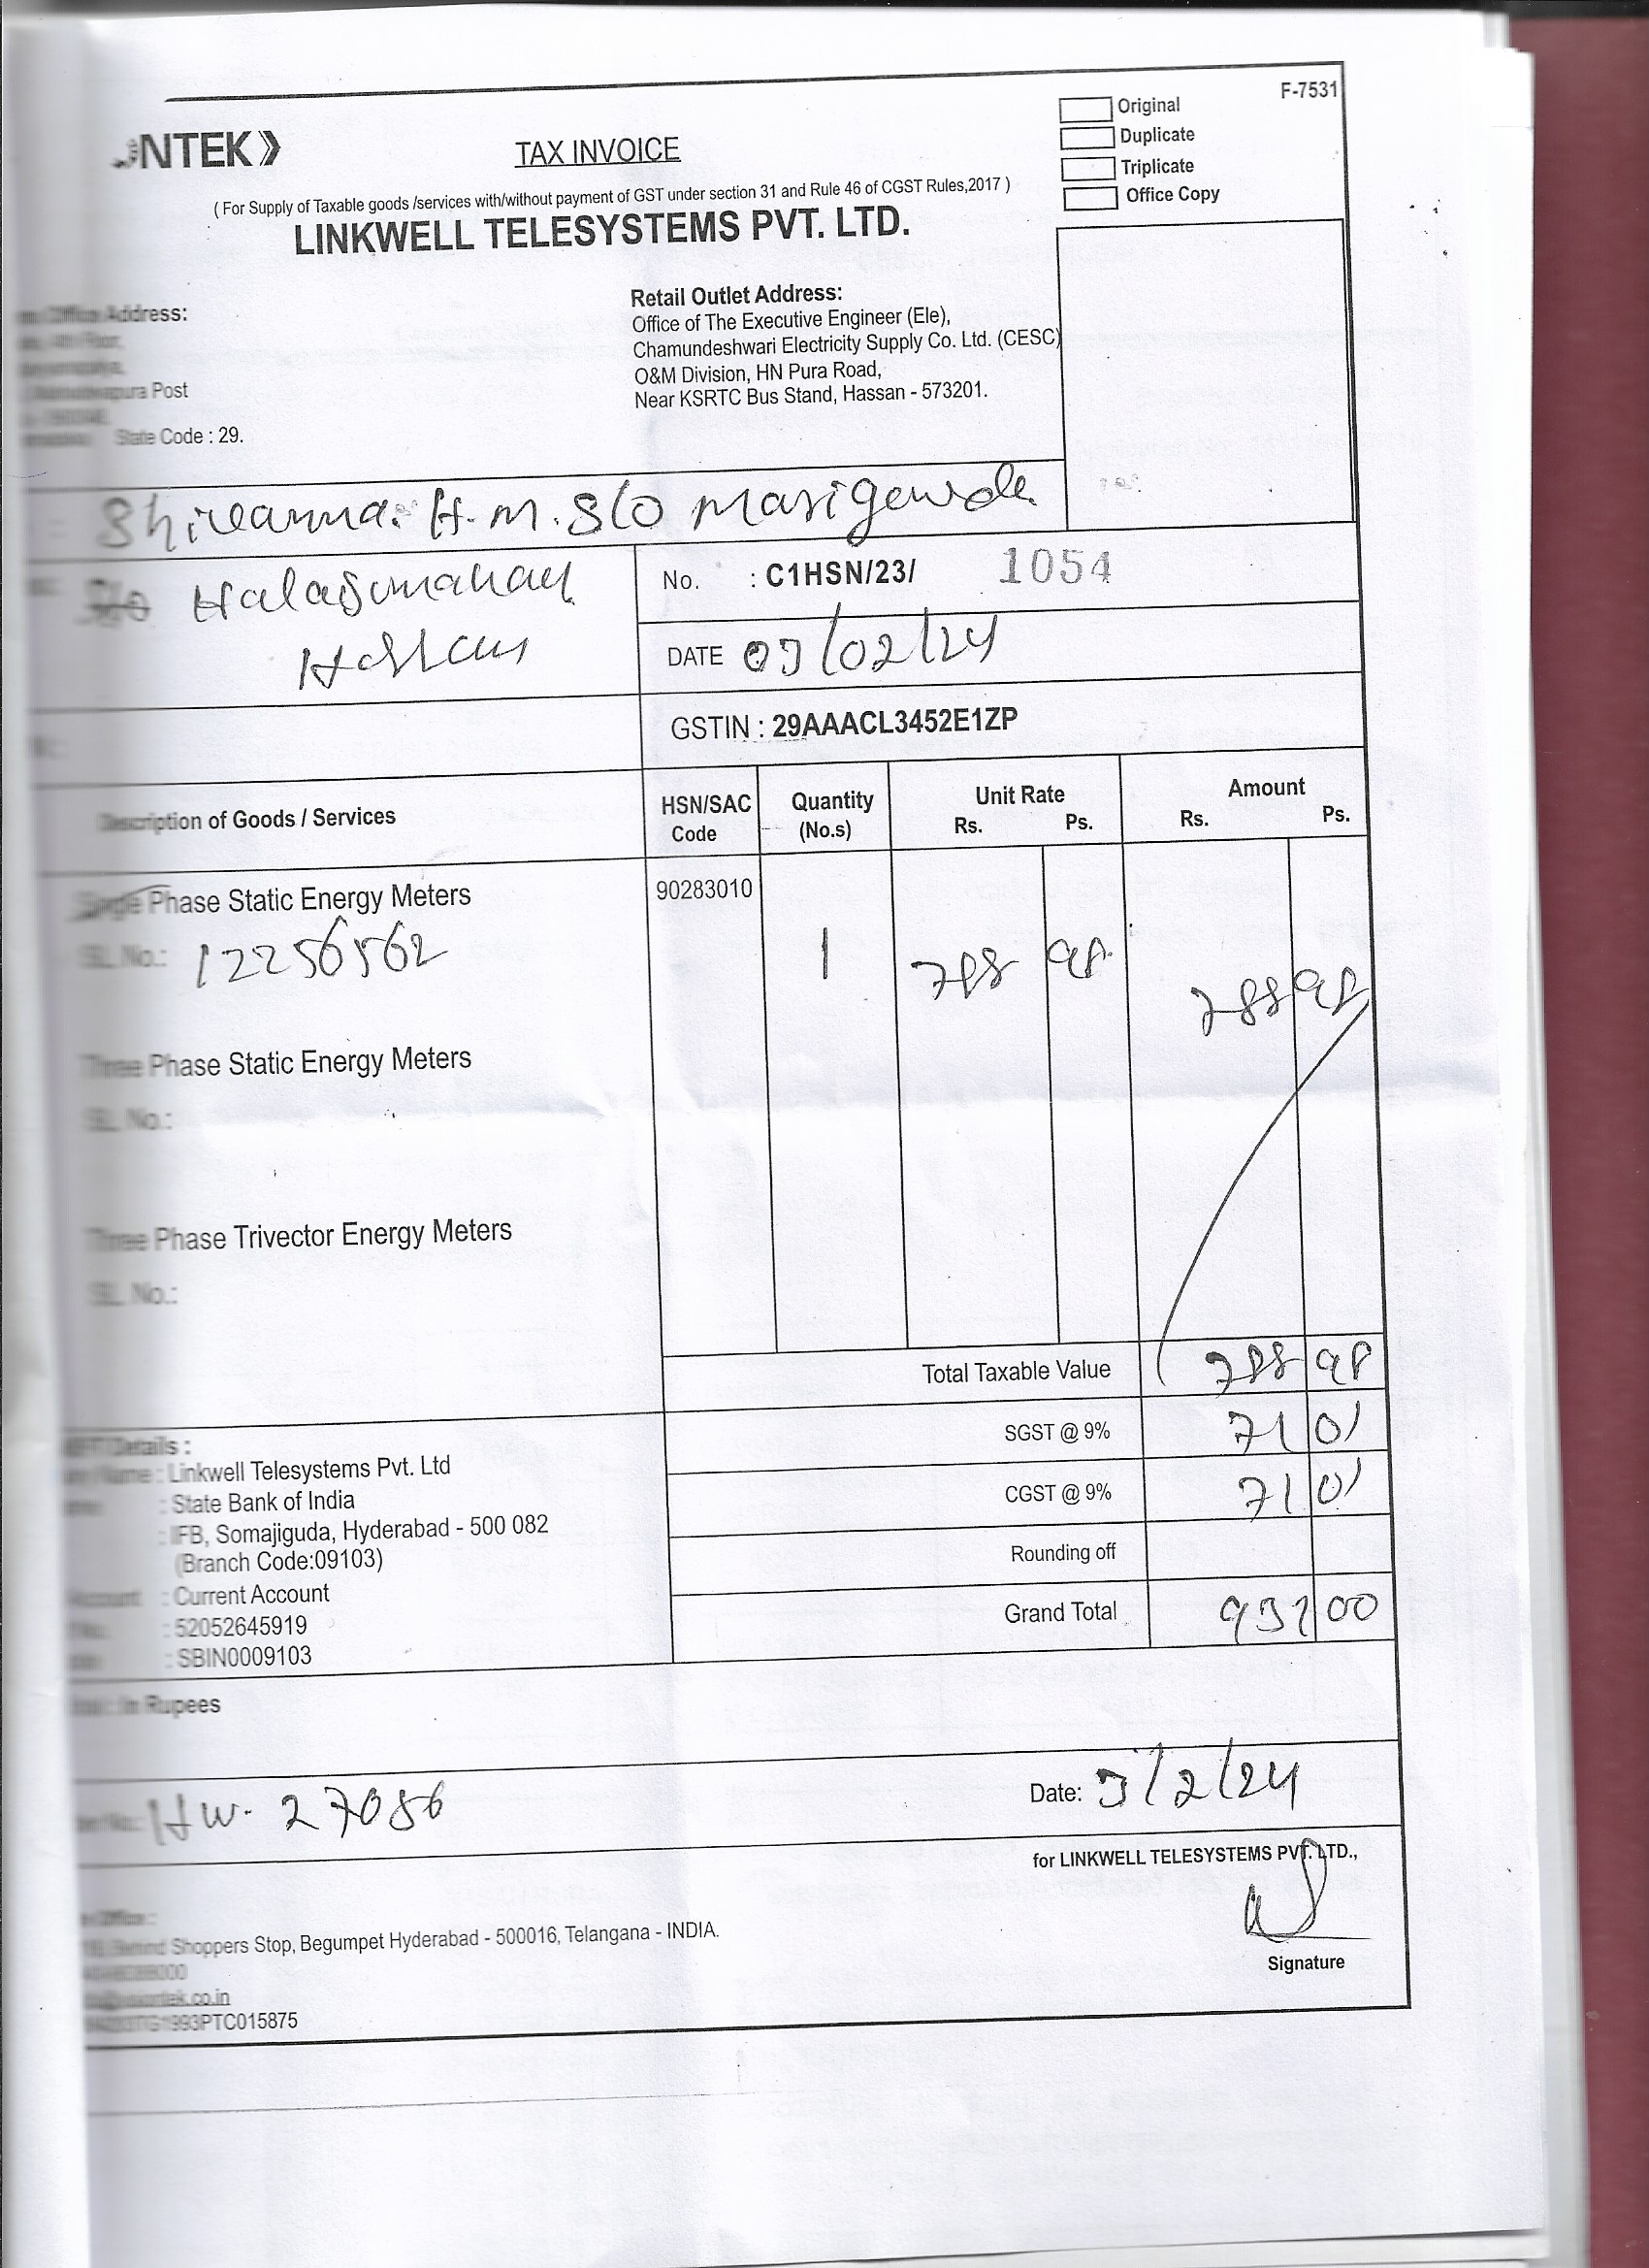 F-7531
Original
Duplicate
Triplicate
Office Copy
NTEK
TAX INVOICE
( For Supply of Taxable goods /services with/without payment of GST under section 31 and Rule 46 of CGST Rules,2017 )
LINKWELL TELESYSTEMS PVT. LTD.
Office Address:
4th Floor,
Post
State Code : 29.
Retail Outlet Address:
Office of The Executive Engineer (Ele),
Chamundeshwari Electricity Supply Co. Ltd. (CESC)
O&M Division, HN Pura Road,
Near KSRTC Bus Stand, Hassan - 573201.
H.M. S/O
No. : C1HSN/23/ 1054
DATE 0 /02/24
GSTIN : 29AAACL3452E1ZP
Description of Goods / Services
HSN/SAC Code
Quantity (No.s)
Unit Rate
Rs. Ps.
Amount
Rs. Ps.
Single Phase Static Energy Meters 90283010
SL No.: 12256562 1 788 98 788 98
Three Phase Static Energy Meters
SL No.:
Three Phase Trivector Energy Meters
SL No.:
Total Taxable Value 788 98
SGST @ 9% 71 01
CGST @ 9% 71 01
Rounding off
Grand Total 931 00
Details :
Name : Linkwell Telesystems Pvt. Ltd
: State Bank of India
: IFB, Somajiguda, Hyderabad - 500 082
(Branch Code:09103)
Account : Current Account
: 52052645919
: SBIN0009103
In Rupees
HW- 27086
Date: /2/24
for LINKWELL TELESYSTEMS PVT. LTD.,
Signature
Office :
Behind Shoppers Stop, Begumpet Hyderabad - 500016, Telangana - INDIA.
1993PTC015875